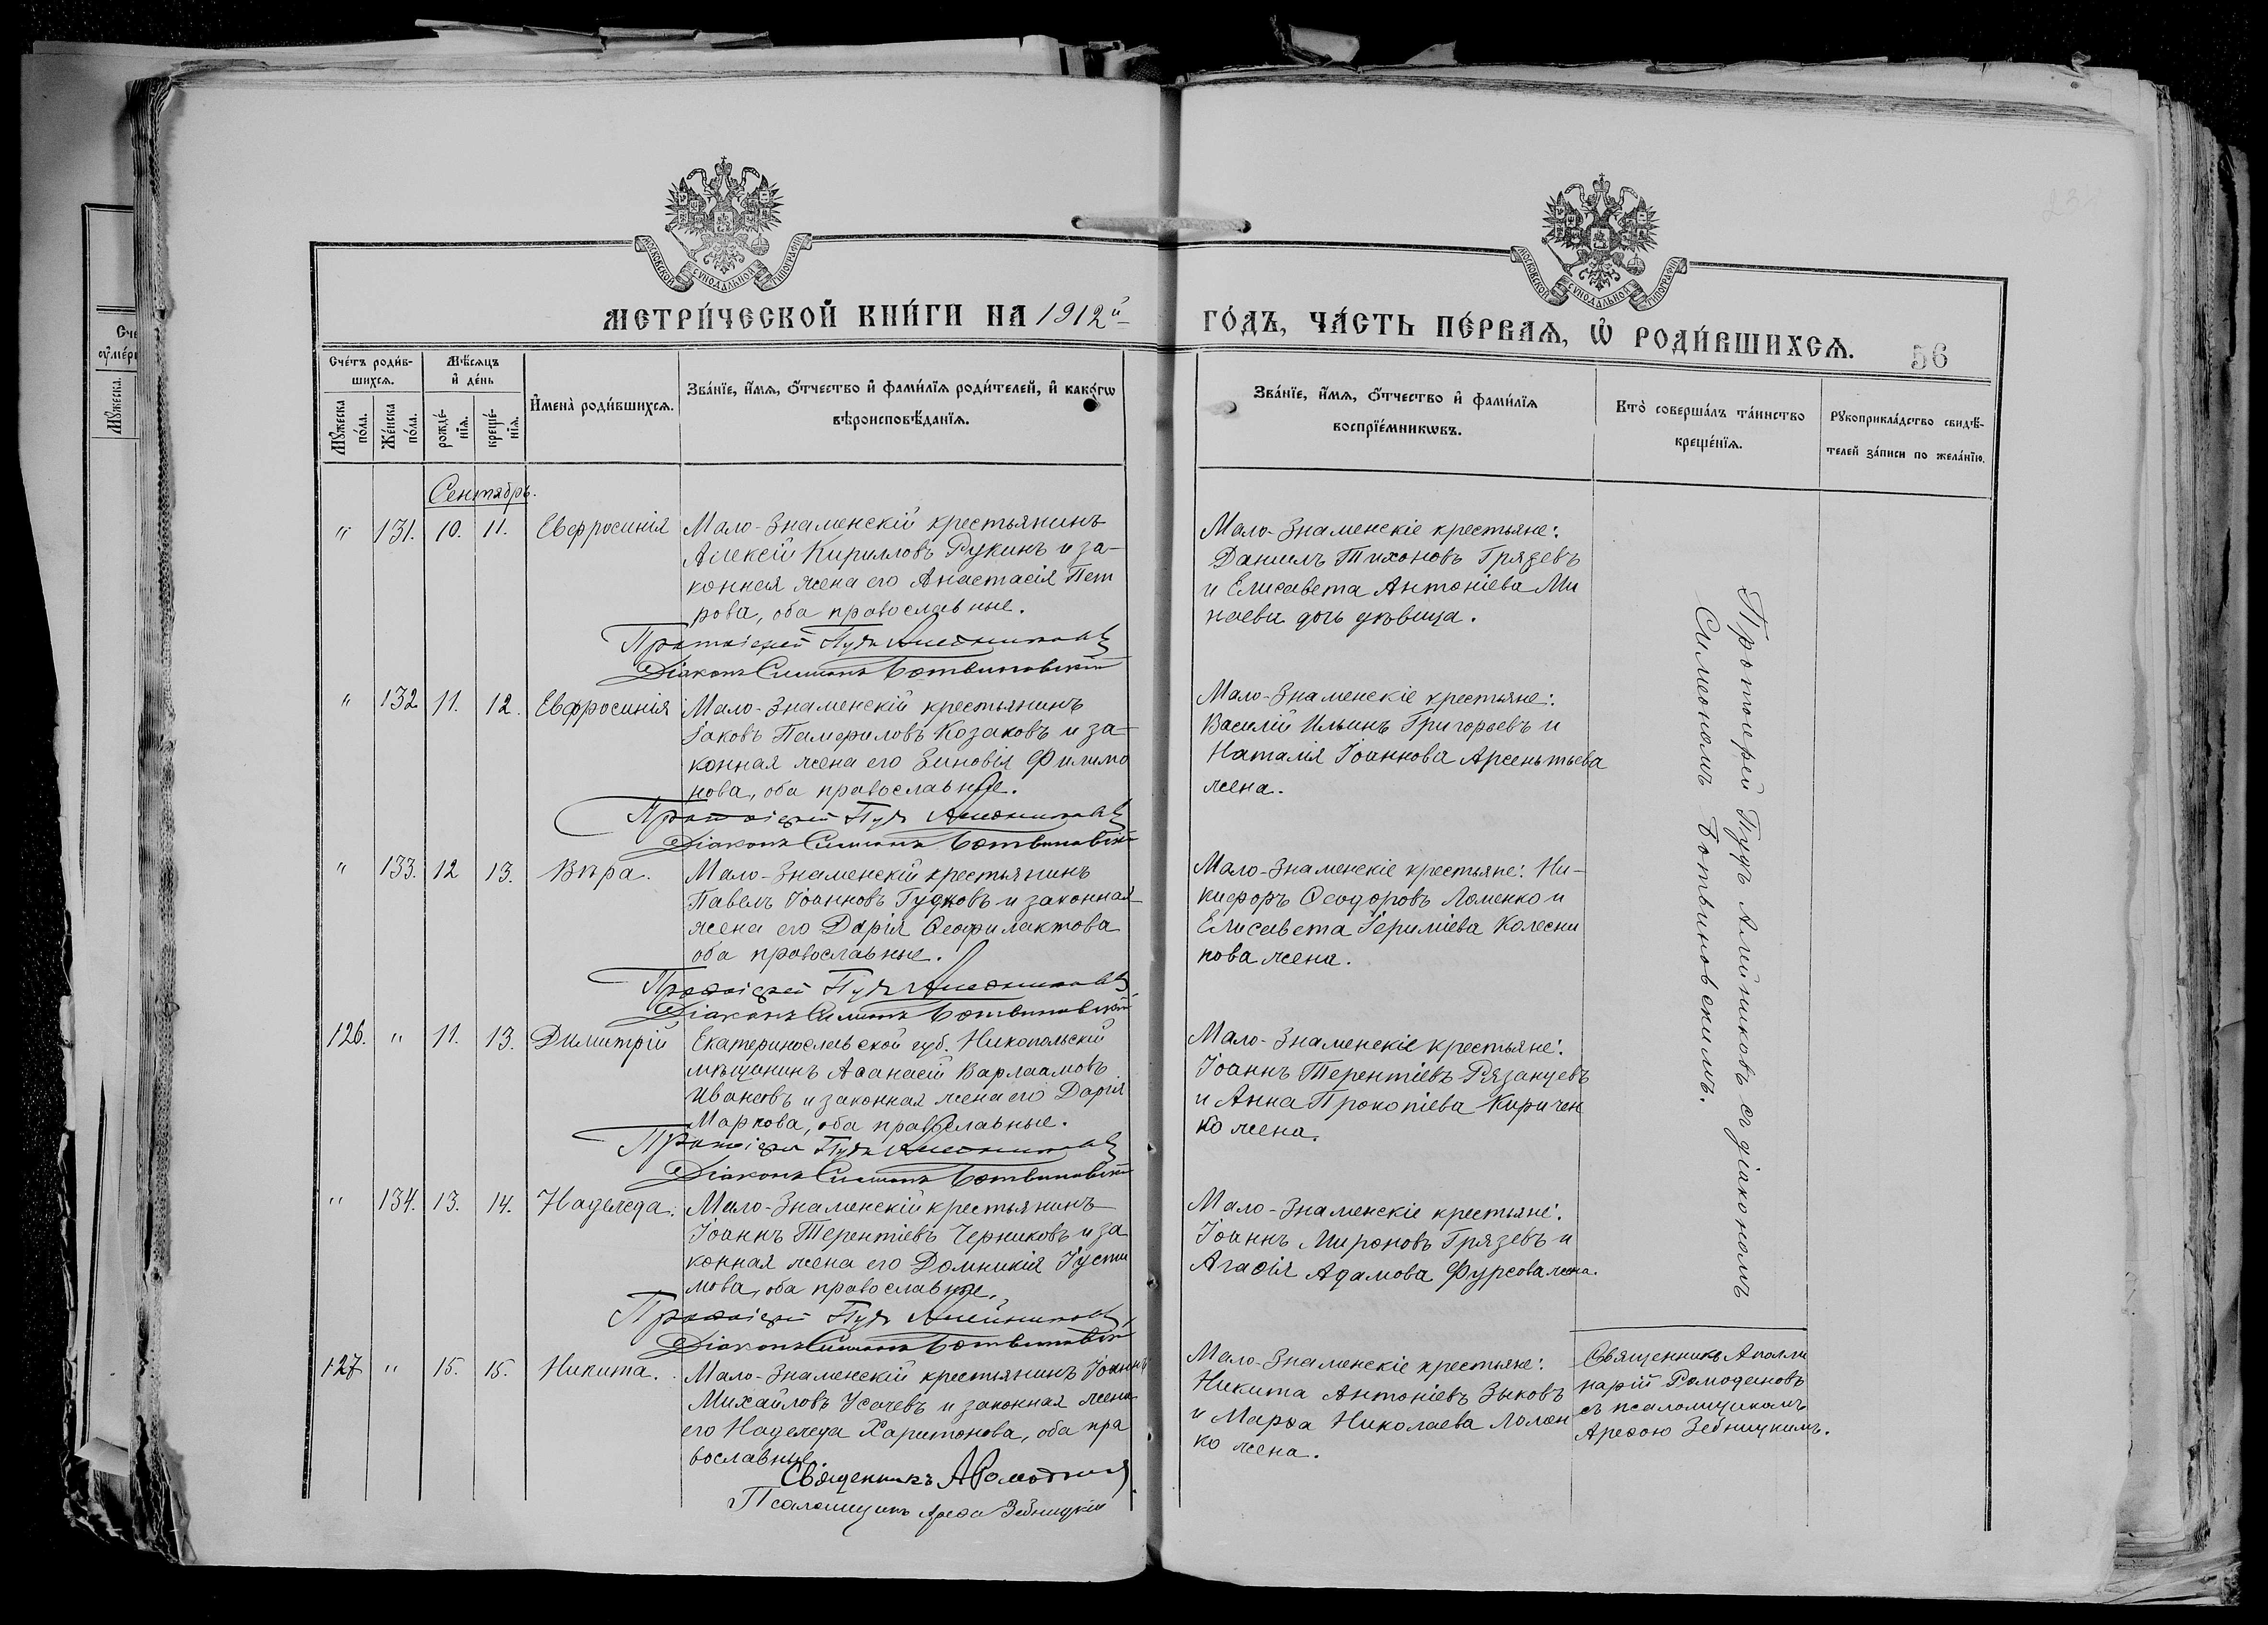 МОСКОВСКОЙ СѴНОДАЛЬНОЙ ТИПОГРАФІИ
МОСКОВСКОЙ СѴНОДАЛЬНОЙ ТИПОГРАФІИ
МЕТРИ́ЧЕСКОЙ КНИ́ГИ НА 1912й
ГО́ДЪ, ЧА́СТЬ ПЕ́РВАЯ, Ѡ҆ РОДИ́ВШИХСЯ.
56
Сче́тъ роди́в-
шихся.
Мѣ́сяцъ
и҆ де́нь
Мꙋ́жеска по́ла.
Же́нска по́ла.
рожде́-
нїя.
креще́-
нїя.
И҆мена̀ роди́вшихся.
Зва́нїе, и҆́мя, ѻ҆́тчество и҆ фами́лїя роди́телей, и҆ како́гѡ
вѣроисповѣ́данїя.
Зва́нїе, и҆́мя, ѻ҆́тчество и҆ фами́лїя
воспрїе́мникѡвъ.
Кто̀ соверша́лъ та́инство
креще́нїя.
Рꙋкоприкла́дство свидѣ́-
телей за́писи по жела́нїю.
Сентябрь.
" 131. 10. 11. Евфросинія
Мало-Знаменскій крестьянинъ
Алексій Кирилловъ Рукинъ и за-
конная жена его Анастасія Пет
рова, оба православные.
Протоіерей Пудъ Алейниковъ
Діаконъ Симеонъ Ботвиновскій
Мало-Знаменскіе крестьяне:
Даніилъ Тихоновъ Грязевъ
и Елисавета Антоніева Ми
наева дочь дѣвица.
" 132 11. 12. Евфросинія
Мало-Знаменскій крестьянинъ
Іаковъ Памфиловъ Козаковъ и за-
конная жена его Зиновія Филимо
нова, оба православные.
Протоіерей Пудъ Алейниковъ
Діаконъ Симеонъ Ботвиновскій
Мало-Знаменскіе крестьяне:
Василій Ильинъ Григорьевъ и
Наталія Іоаннова Арсентьева
жена.
" 133. 12 13. Вѣра.
Мало-Знаменскій крестьянинъ
Павелъ Іоанновъ Гудковъ и законная
жена его Дарія Ѳеофилактова
оба православные.
Протоіерей Пудъ Алейниковъ
Діаконъ Симеонъ Ботвиновскій
Мало-Знаменскіе крестьяне: Ни-
кифоръ Ѳеодоровъ Ломенко и
Елисавета Іереміева Колесни
кова жена.
126. " 11. 13. Димитрій
Екатеринославской губ. Никопольскій
мѣщанинъ Аѳанасій Варлаамовъ
Ивановъ и законная жена его Дарія
Маркова, оба православные.
Протоіерей Пудъ Алейниковъ
Діаконъ Симеонъ Ботвиновскій
Мало-Знаменскіе крестьяне:
Іоаннъ Терентіевъ Рязанцевъ
и Анна Прокопіева Киричен
ко жена.
" 134. 13. 14. Надежда.
Мало-Знаменскій крестьянинъ
Іоаннъ Терентіевъ Черниковъ и за
конная жена его Домникія Іусти
нова, оба православные.
Протоіерей Пудъ Алейниковъ,
Діаконъ Симеонъ Ботвиновскій
Мало-Знаменскіе крестьяне:
Іоаннъ Мироновъ Грязевъ и
Агафія Адамова Фурсова жена.
Протоіерей Пудъ Алейниковъ съ діакономъ
Симеономъ Ботвиновскимъ.
127 " 15. 15. Никита.
Мало-Знаменскій крестьянинъ Іоаннъ
Михайловъ Усачевъ и законная жена
его Надежда Харитонова, оба пра
вославные.
Священникъ А Ромодановъ
Псаломщикъ Арефа Зебницкій
Мало-Знаменскіе крестьяне:
Никита Антоніевъ Зыковъ
и Марѳа Николаева Ломен
ко жена.
Священникъ Аполли
нарій Ромодановъ
съ псаломщикомъ
Арефою Зебницкимъ.